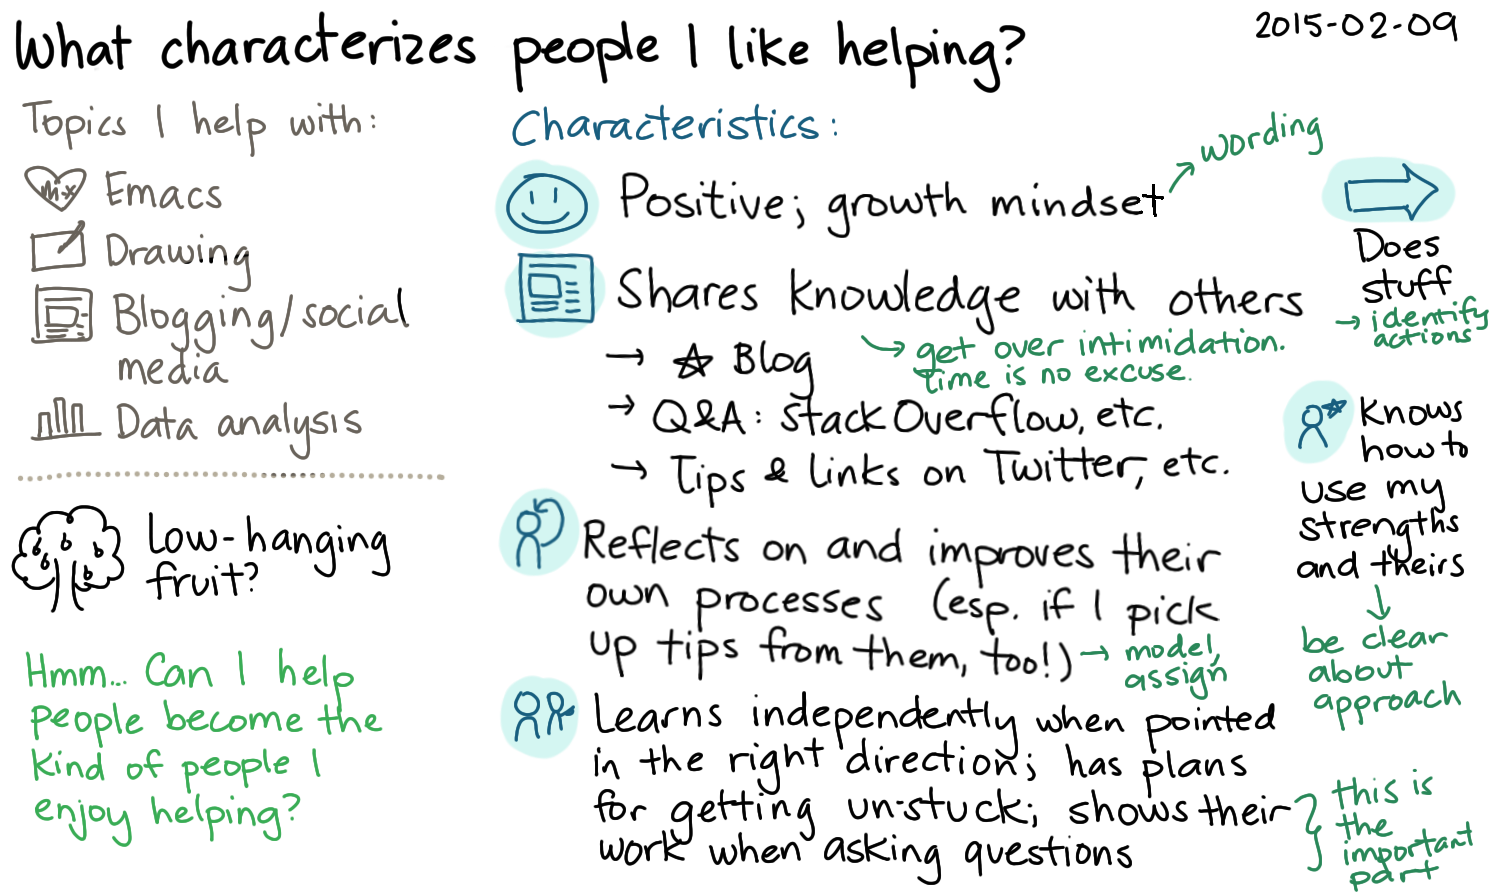 What characterizes people I like helping?
2015-02-09
Topics I help with:
M-x
Emacs
Drawing
Blogging/social
media
Data analysis
Low-hanging
fruit?
Hmm... Can I help
people become the
kind of people I
enjoy helping?
Characteristics:
Positive; growth mindset
wording
Shares knowledge with others
→ get over intimidation.
time is no excuse.
→ ☆ Blog
→ Q&A: StackOverflow, etc.
→ Tips & links on Twitter, etc.
Reflects on and improves their
own processes (esp. if I pick
up tips from them, too!)
→ model,
assign
Learns independently when pointed
in the right direction; has plans
for getting un-stuck; shows their
work when asking questions
this is
the
important
part
Does
stuff
→ identify
actions
Knows
how to
use my
strengths
and theirs
be clear
about
approach